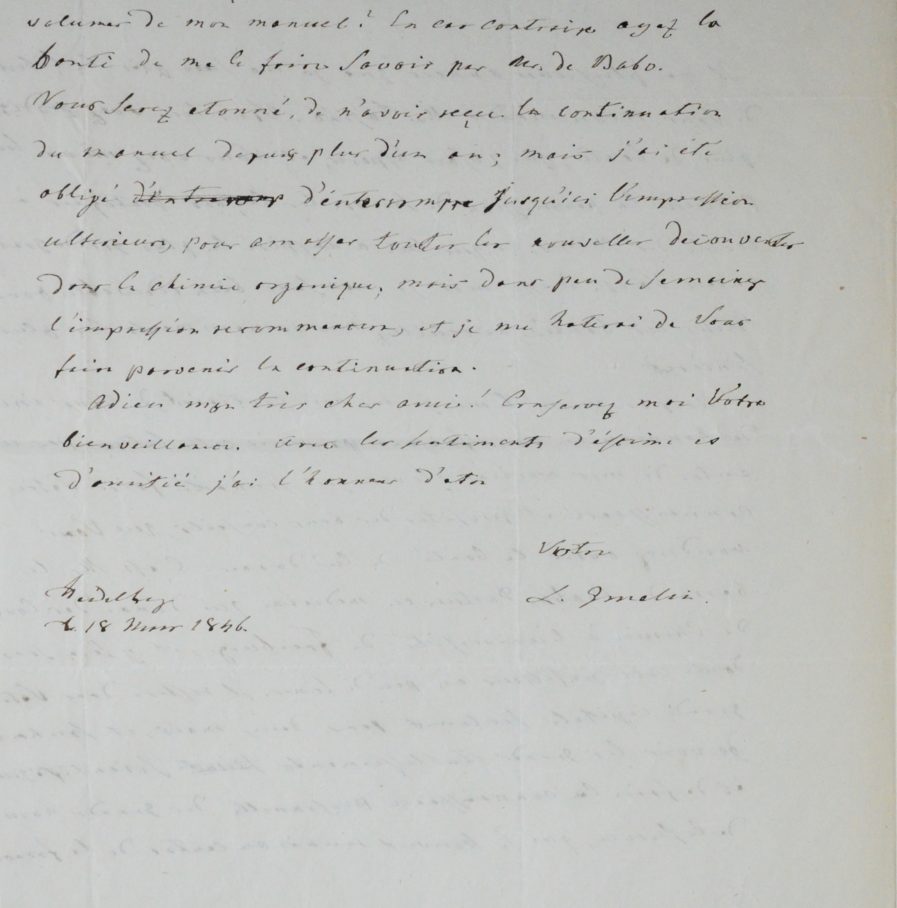 volumes de mon manuel? En cas contraire ayez la
bonté de me le faire savoir par Mr. de Babo.
Vous serez etonné, de n'avoir reçu la continuation
du manuel depuis plus d'un an; mais j'ai été
obligé d'entrerompre jusqu'ici l'impression
ulterieure, pour amasser toutes les nouvelles decouvertes
dans la chimie organique; mais dans peu de semaines
l'impression recommencera, et je me haterai de Vous
faire parvenir la continuation.
Adieu mon très cher ami! Conservez moi Votre
bienveillance. Avec les sentiments d'éstime et
d'amitié j'ai l'honneur d'etre
Votre
L. Gmelin.
Heidelberg
d. 18 1846.